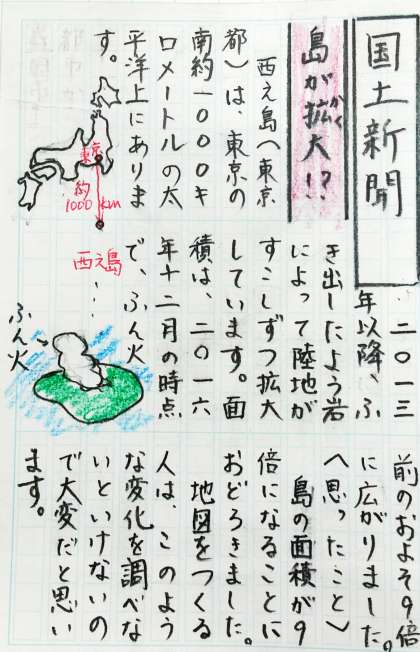 国土新聞
島が拡大!?
かく
西之島〈東京
都〉は、東京の
南約一〇〇〇キ
ロメートルの太
平洋上にありま
す。
東京
約
1000km
西之島
二〇一三
年以降、ふ
き出したよう岩
によって陸地が
すこしずつ拡大
しています。面
積は、二〇一六
年十二月の時点
で、ふん火
ふん火
前のおよそ9倍
に広がりました。
〈思ったこと〉
島の面積が9
倍になることに
おどろきました。
地図をつくる
人は、このよう
な変化を調べな
いといけないの
で大変だと思い
ます。